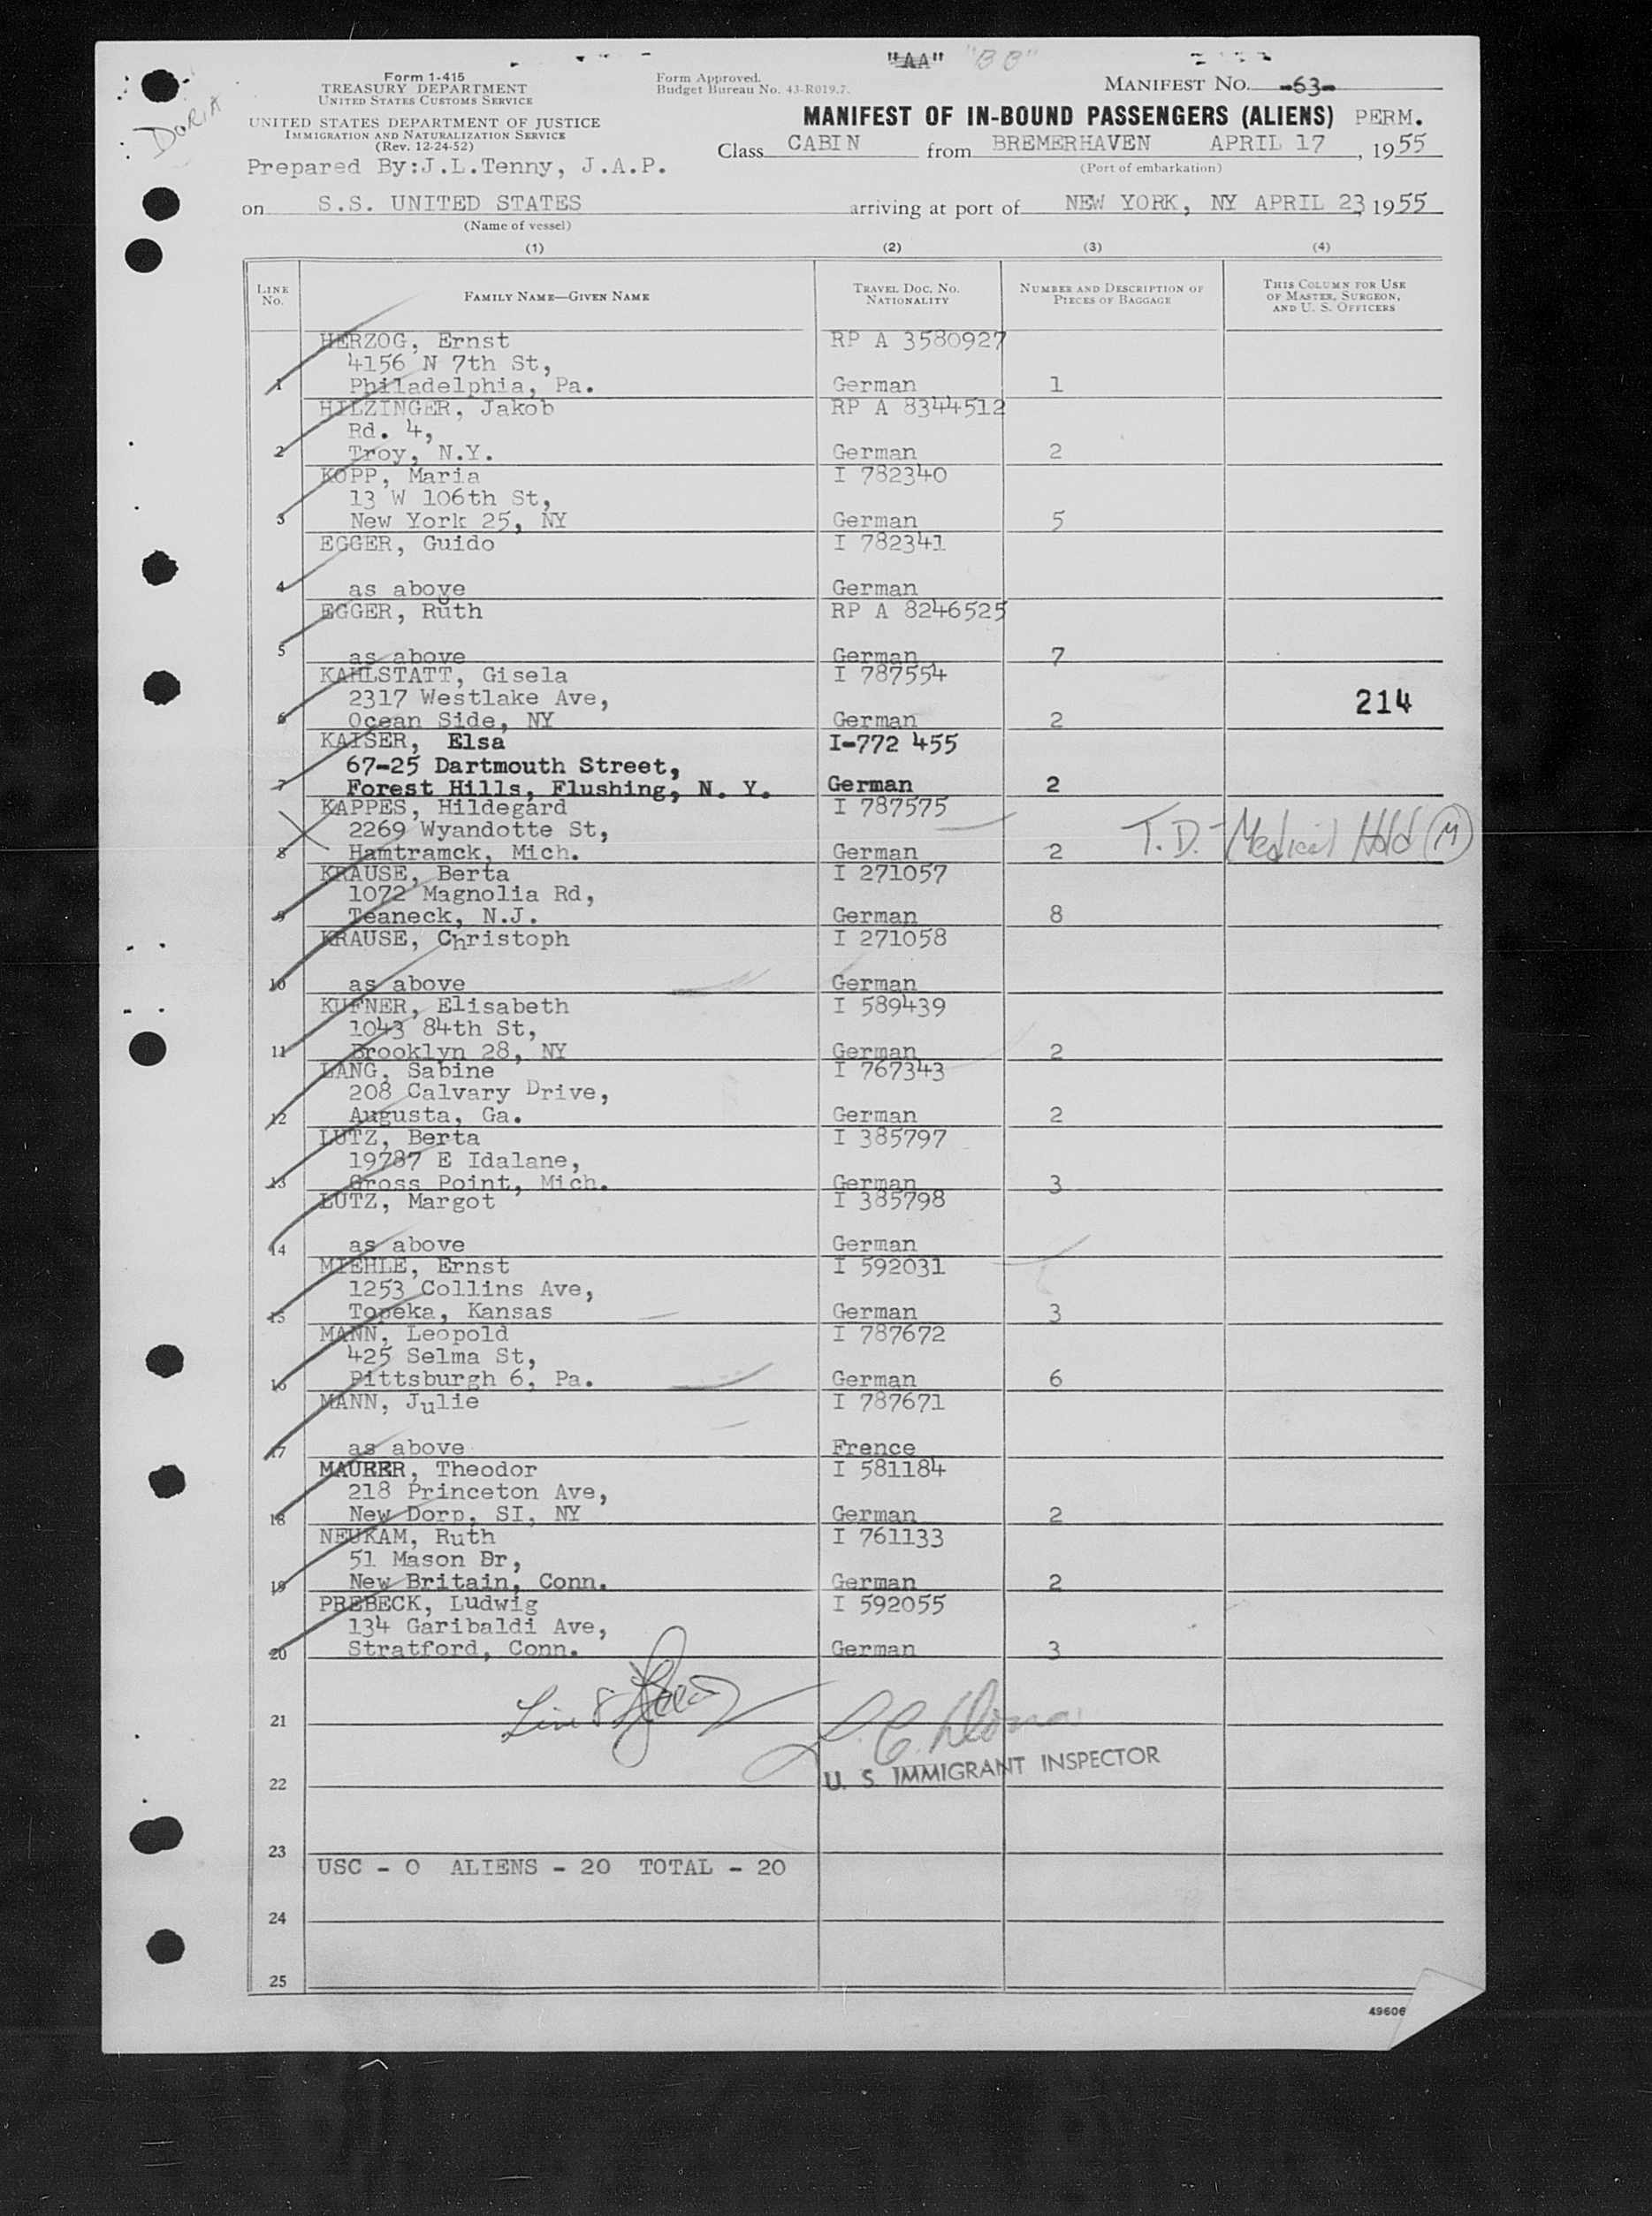 "AA" "BB"
Form 1-415
TREASURY DEPARTMENT
UNITED STATES CUSTOMS SERVICE
Form Approved.
Budget Bureau No. 43-R019.7.
MANIFEST NO. -63-
DORIA
UNITED STATES DEPARTMENT OF JUSTICE
IMMIGRATION AND NATURALIZATION SERVICE
(Rev. 12-24-52)
MANIFEST OF IN-BOUND PASSENGERS (ALIENS) PERM.
Class CABIN from BREMERHAVEN APRIL 17, 1955
(Port of embarkation)
Prepared By:J.L.Tenny, J.A.P.
on S.S. UNITED STATES arriving at port of NEW YORK, NY APRIL 23 1955
(Name of vessel)
(1) (2) (3) (4)
LINE No. FAMILY NAME—GIVEN NAME TRAVEL DOC. NO. NATIONALITY NUMBER AND DESCRIPTION OF PIECES OF BAGGAGE THIS COLUMN FOR USE OF MASTER, SURGEON, AND U. S. OFFICERS
HERZOG, Ernst RP A 3580927
4156 N 7th St,
1 Philadelphia, Pa. German 1
HILZINGER, Jakob RP A 8344512
Rd. 4,
2 Troy, N.Y. German 2
KOPP, Maria I 782340
13 W 106th St,
3 New York 25, NY German 5
EGGER, Guido I 782341
4 as above German
EGGER, Ruth RP A 8246525
5 as above German 7
KAHLSTATT, Gisela I 787554
2317 Westlake Ave, 214
6 Ocean Side, NY German 2
KAISER, Elsa I-772 455
67-25 Dartmouth Street,
7 Forest Hills, Flushing, N. Y. German 2
KAPPES, Hildegard I 787575
2269 Wyandotte St,
8 Hamtramck, Mich. German 2 T.D. - Medical Hold (M)
KRAUSE, Berta I 271057
1072 Magnolia Rd,
9 Teaneck, N.J. German 8
KRAUSE, Christoph I 271058
10 as above German
KUFNER, Elisabeth I 589439
1043 84th St,
11 Brooklyn 28, NY German 2
LANG, Sabine I 767343
208 Calvary Drive,
12 Augusta, Ga. German 2
LUTZ, Berta I 385797
19787 E Idalane,
13 Gross Point, Mich. German 3
LUTZ, Margot I 385798
14 as above German
MIEHLE, Ernst I 592031
1253 Collins Ave,
15 Topeka, Kansas German 3
MANN, Leopold I 787672
425 Selma St,
16 Pittsburgh 6, Pa. German 6
MANN, Julie I 787671
17 as above Frence
MAURER, Theodor I 581184
218 Princeton Ave,
18 New Dorp, SI, NY German 2
NEUKAM, Ruth I 761133
51 Mason Dr,
19 New Britain, Conn. German 2
PREBECK, Ludwig I 592055
134 Garibaldi Ave,
20 Stratford, Conn. German 3
Line 8
21
U. S. IMMIGRANT INSPECTOR
22
23
USC - 0 ALIENS - 20 TOTAL - 20
24
25
49606